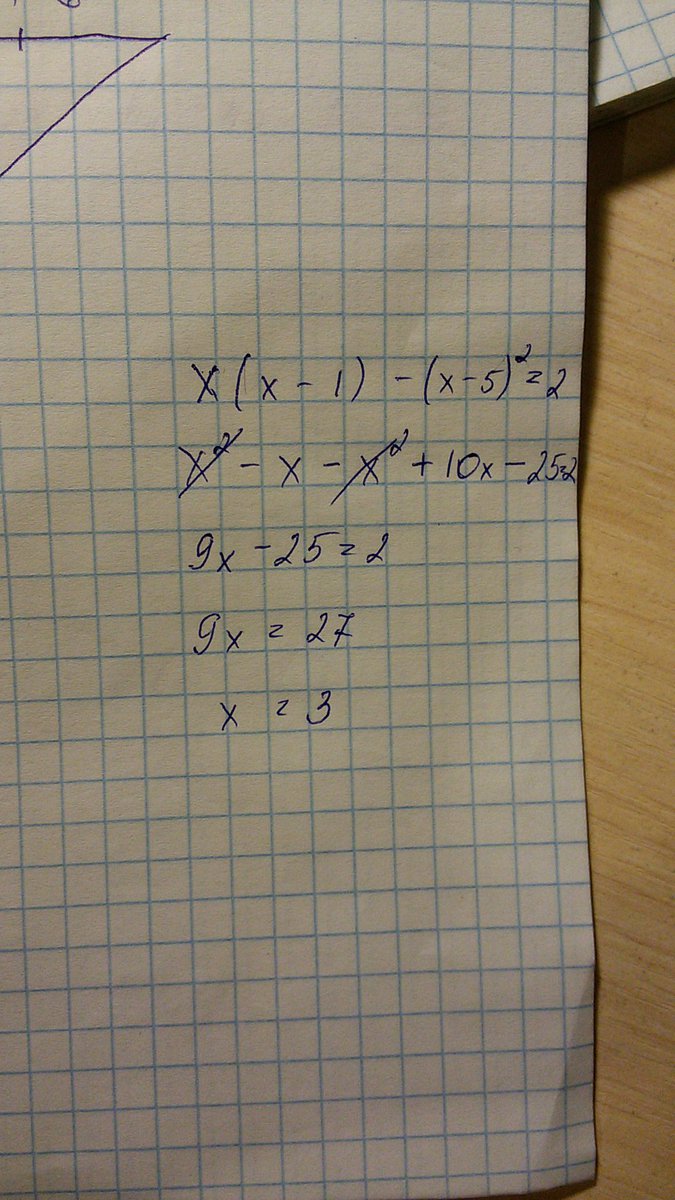 x(x - 1) - (x - 5)² = 2
x² - x - x² + 10x - 25 = 2
9x - 25 = 2
9x = 27
x = 3